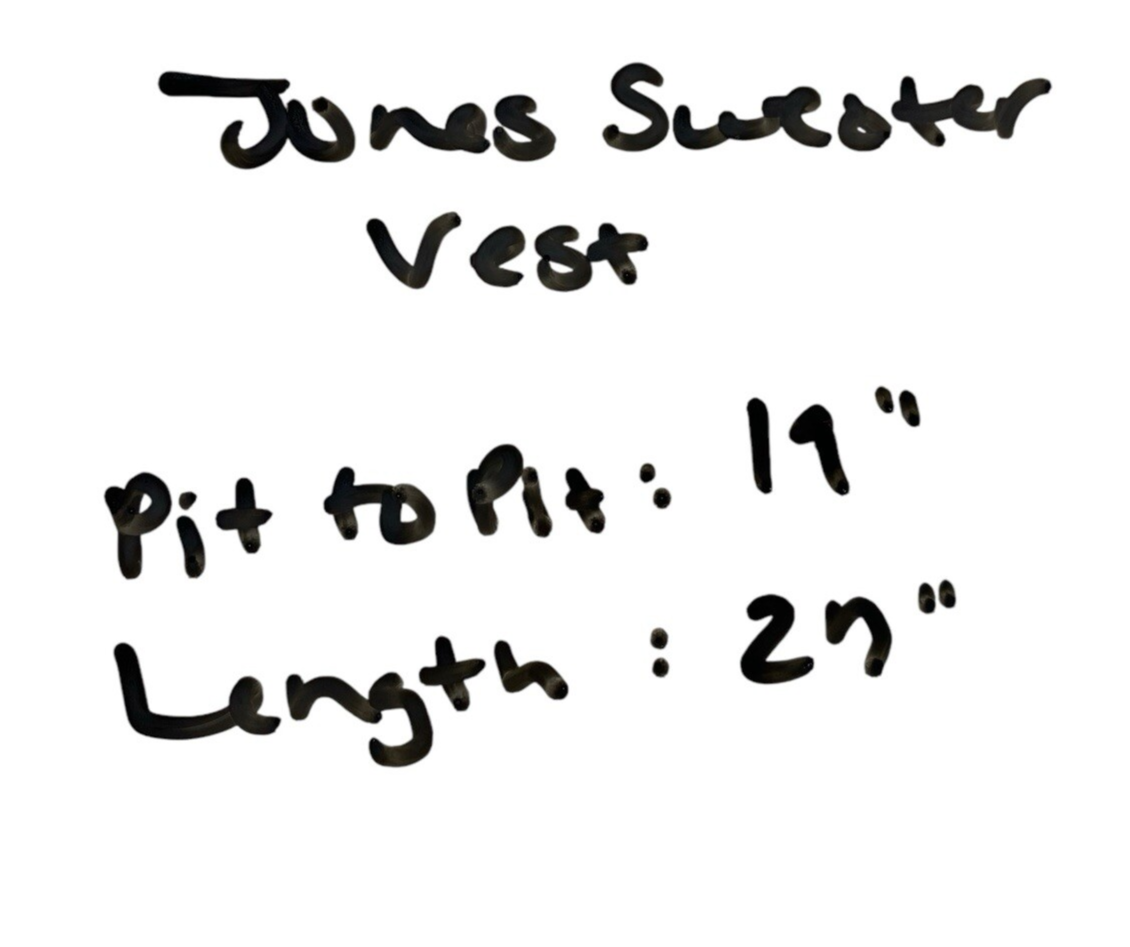 Jones Sweater
Vest
Pit to Pit: 19"
Length: 27"